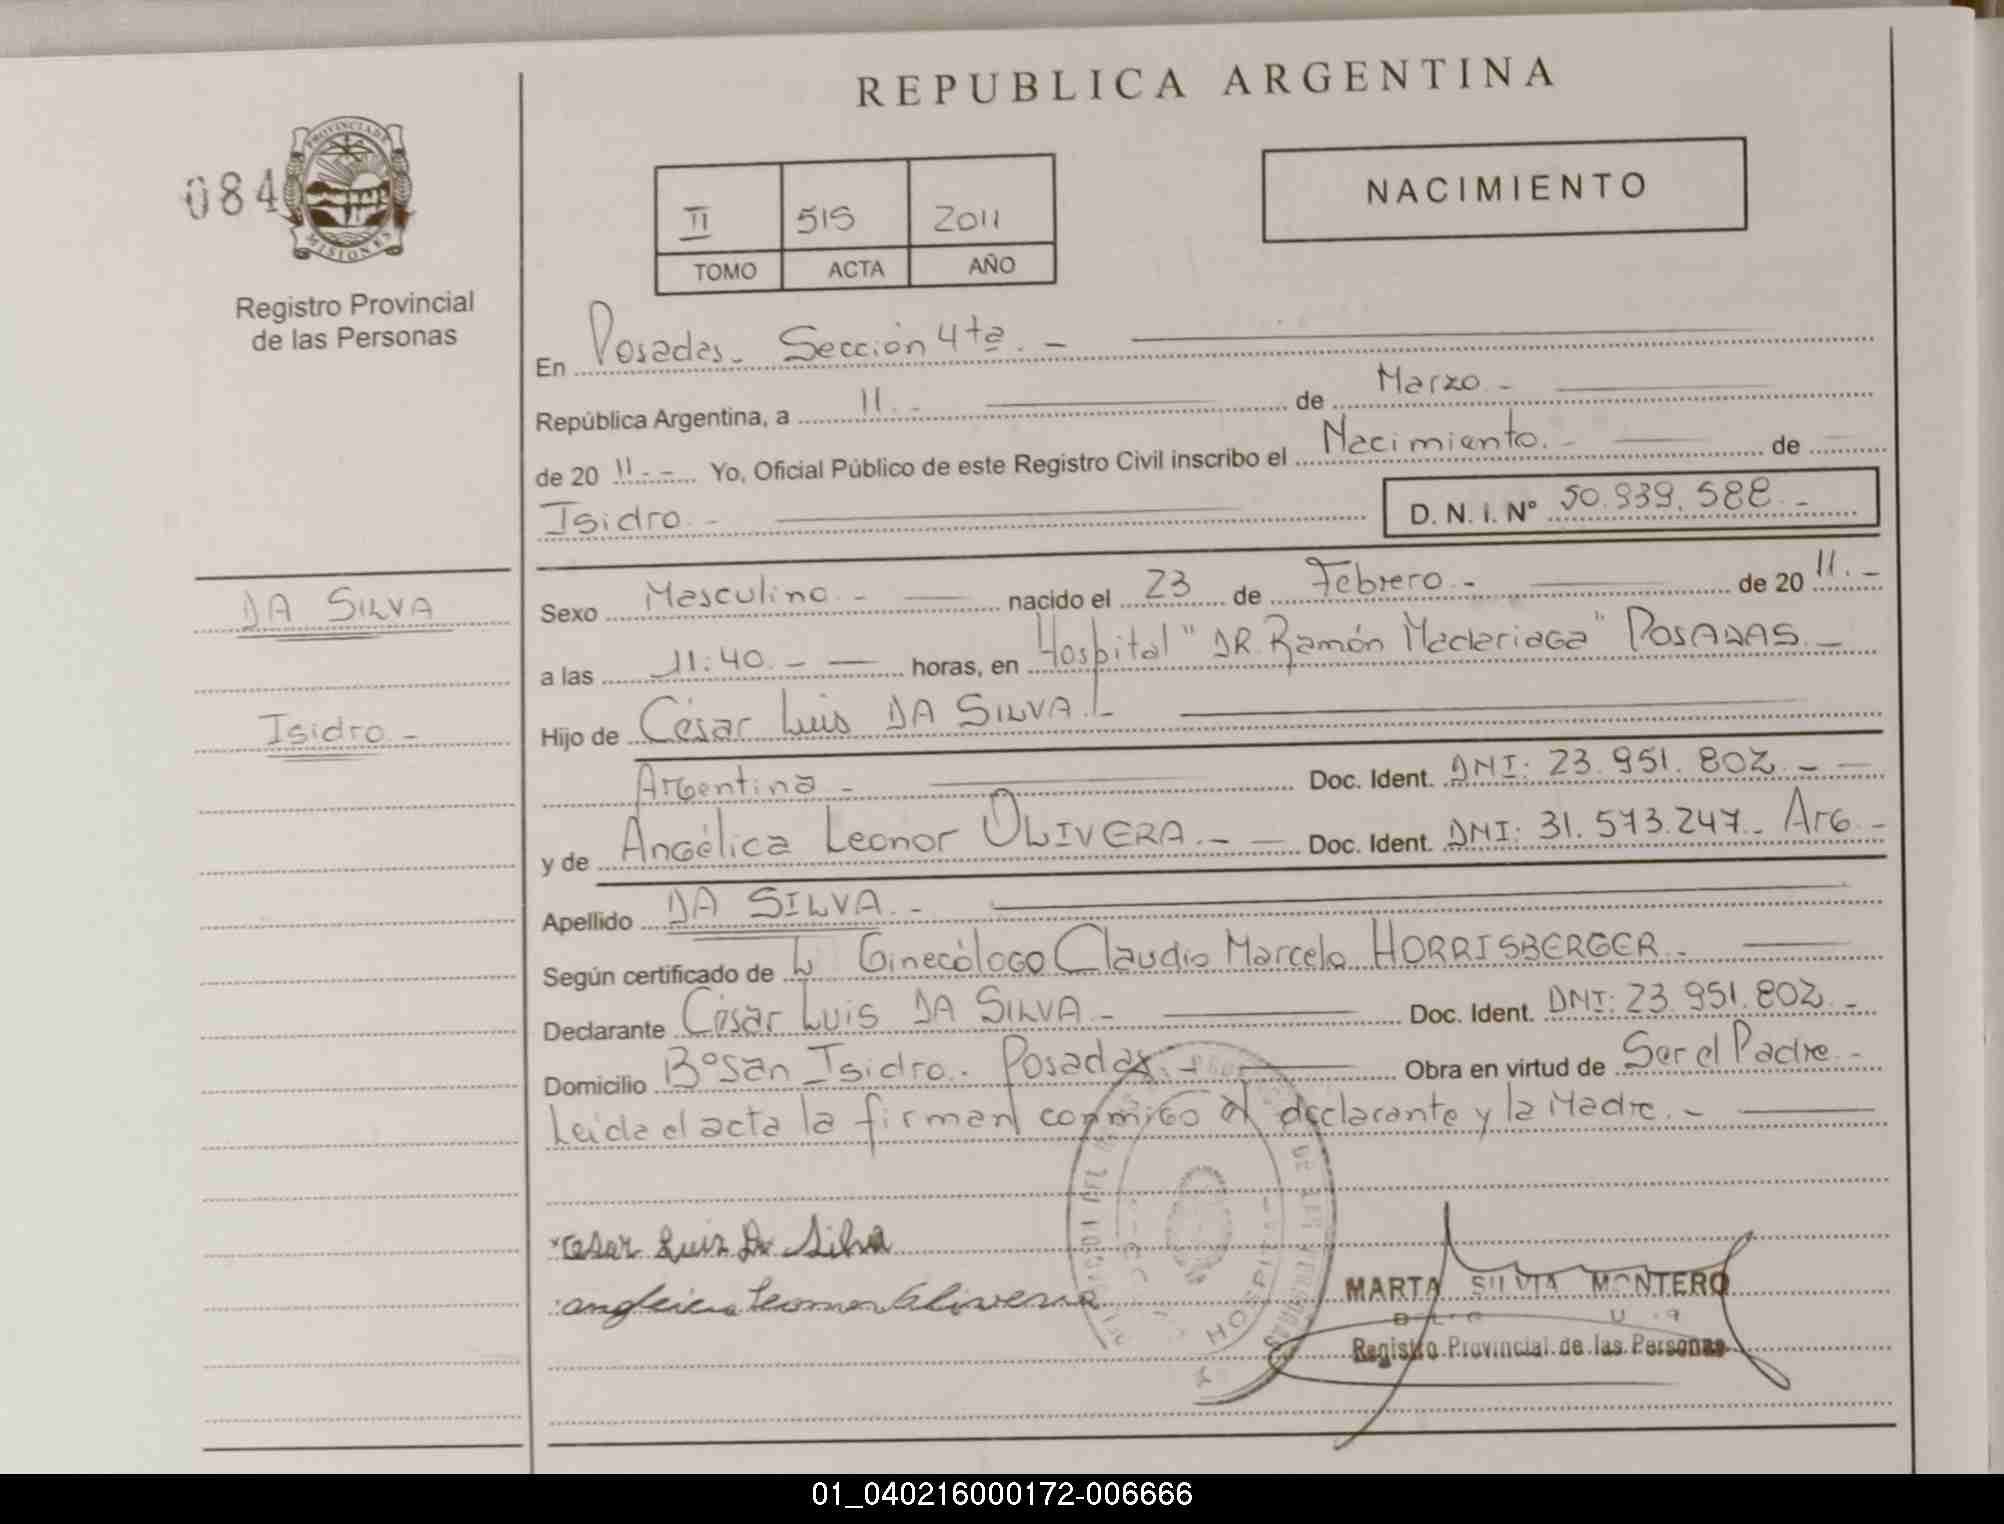 REPUBLICA ARGENTINA
084
PROVINCIA DE
MISIONES
Registro Provincial
de las Personas
II 515 2011
TOMO ACTA AÑO
NACIMIENTO
En Posadas. Sección 4ta. -
República Argentina, a 11. - de Marzo -
de 20 11 - - Yo, Oficial Público de este Registro Civil inscribo el Nacimiento. - de
Isidro. - D. N. I. Nº 50.939.588. -
DA SILVA
Isidro. -
Sexo Masculino. - nacido el 23 de Febrero. - de 20 11. -
a las 11:40. - - horas, en Hospital "DR. Ramón Madariaga" POSADAS. -
Hijo de César Luis DA SILVA. -
Argentina - Doc. Ident. DNI: 23.951.802. - -
y de Angélica Leonor OLIVERA. - - Doc. Ident. DNI: 31.573.247. - Arg. -
Apellido DA SILVA. -
Según certificado de Ginecólogo Claudio Marcelo HORRISBERGER. -
Declarante César Luis DA SILVA. - Doc. Ident. DNI: 23.951.802. -
Domicilio Bº San Isidro. Posadas. - Obra en virtud de Ser el Padre. -
Leida el acta la firman conmigo el declarante y la Madre. -
Cesar Luis Da Silva
MARTA SILVIA MONTERO
Registro Provincial de las Personas
HOSPI
01_040216000172-006666